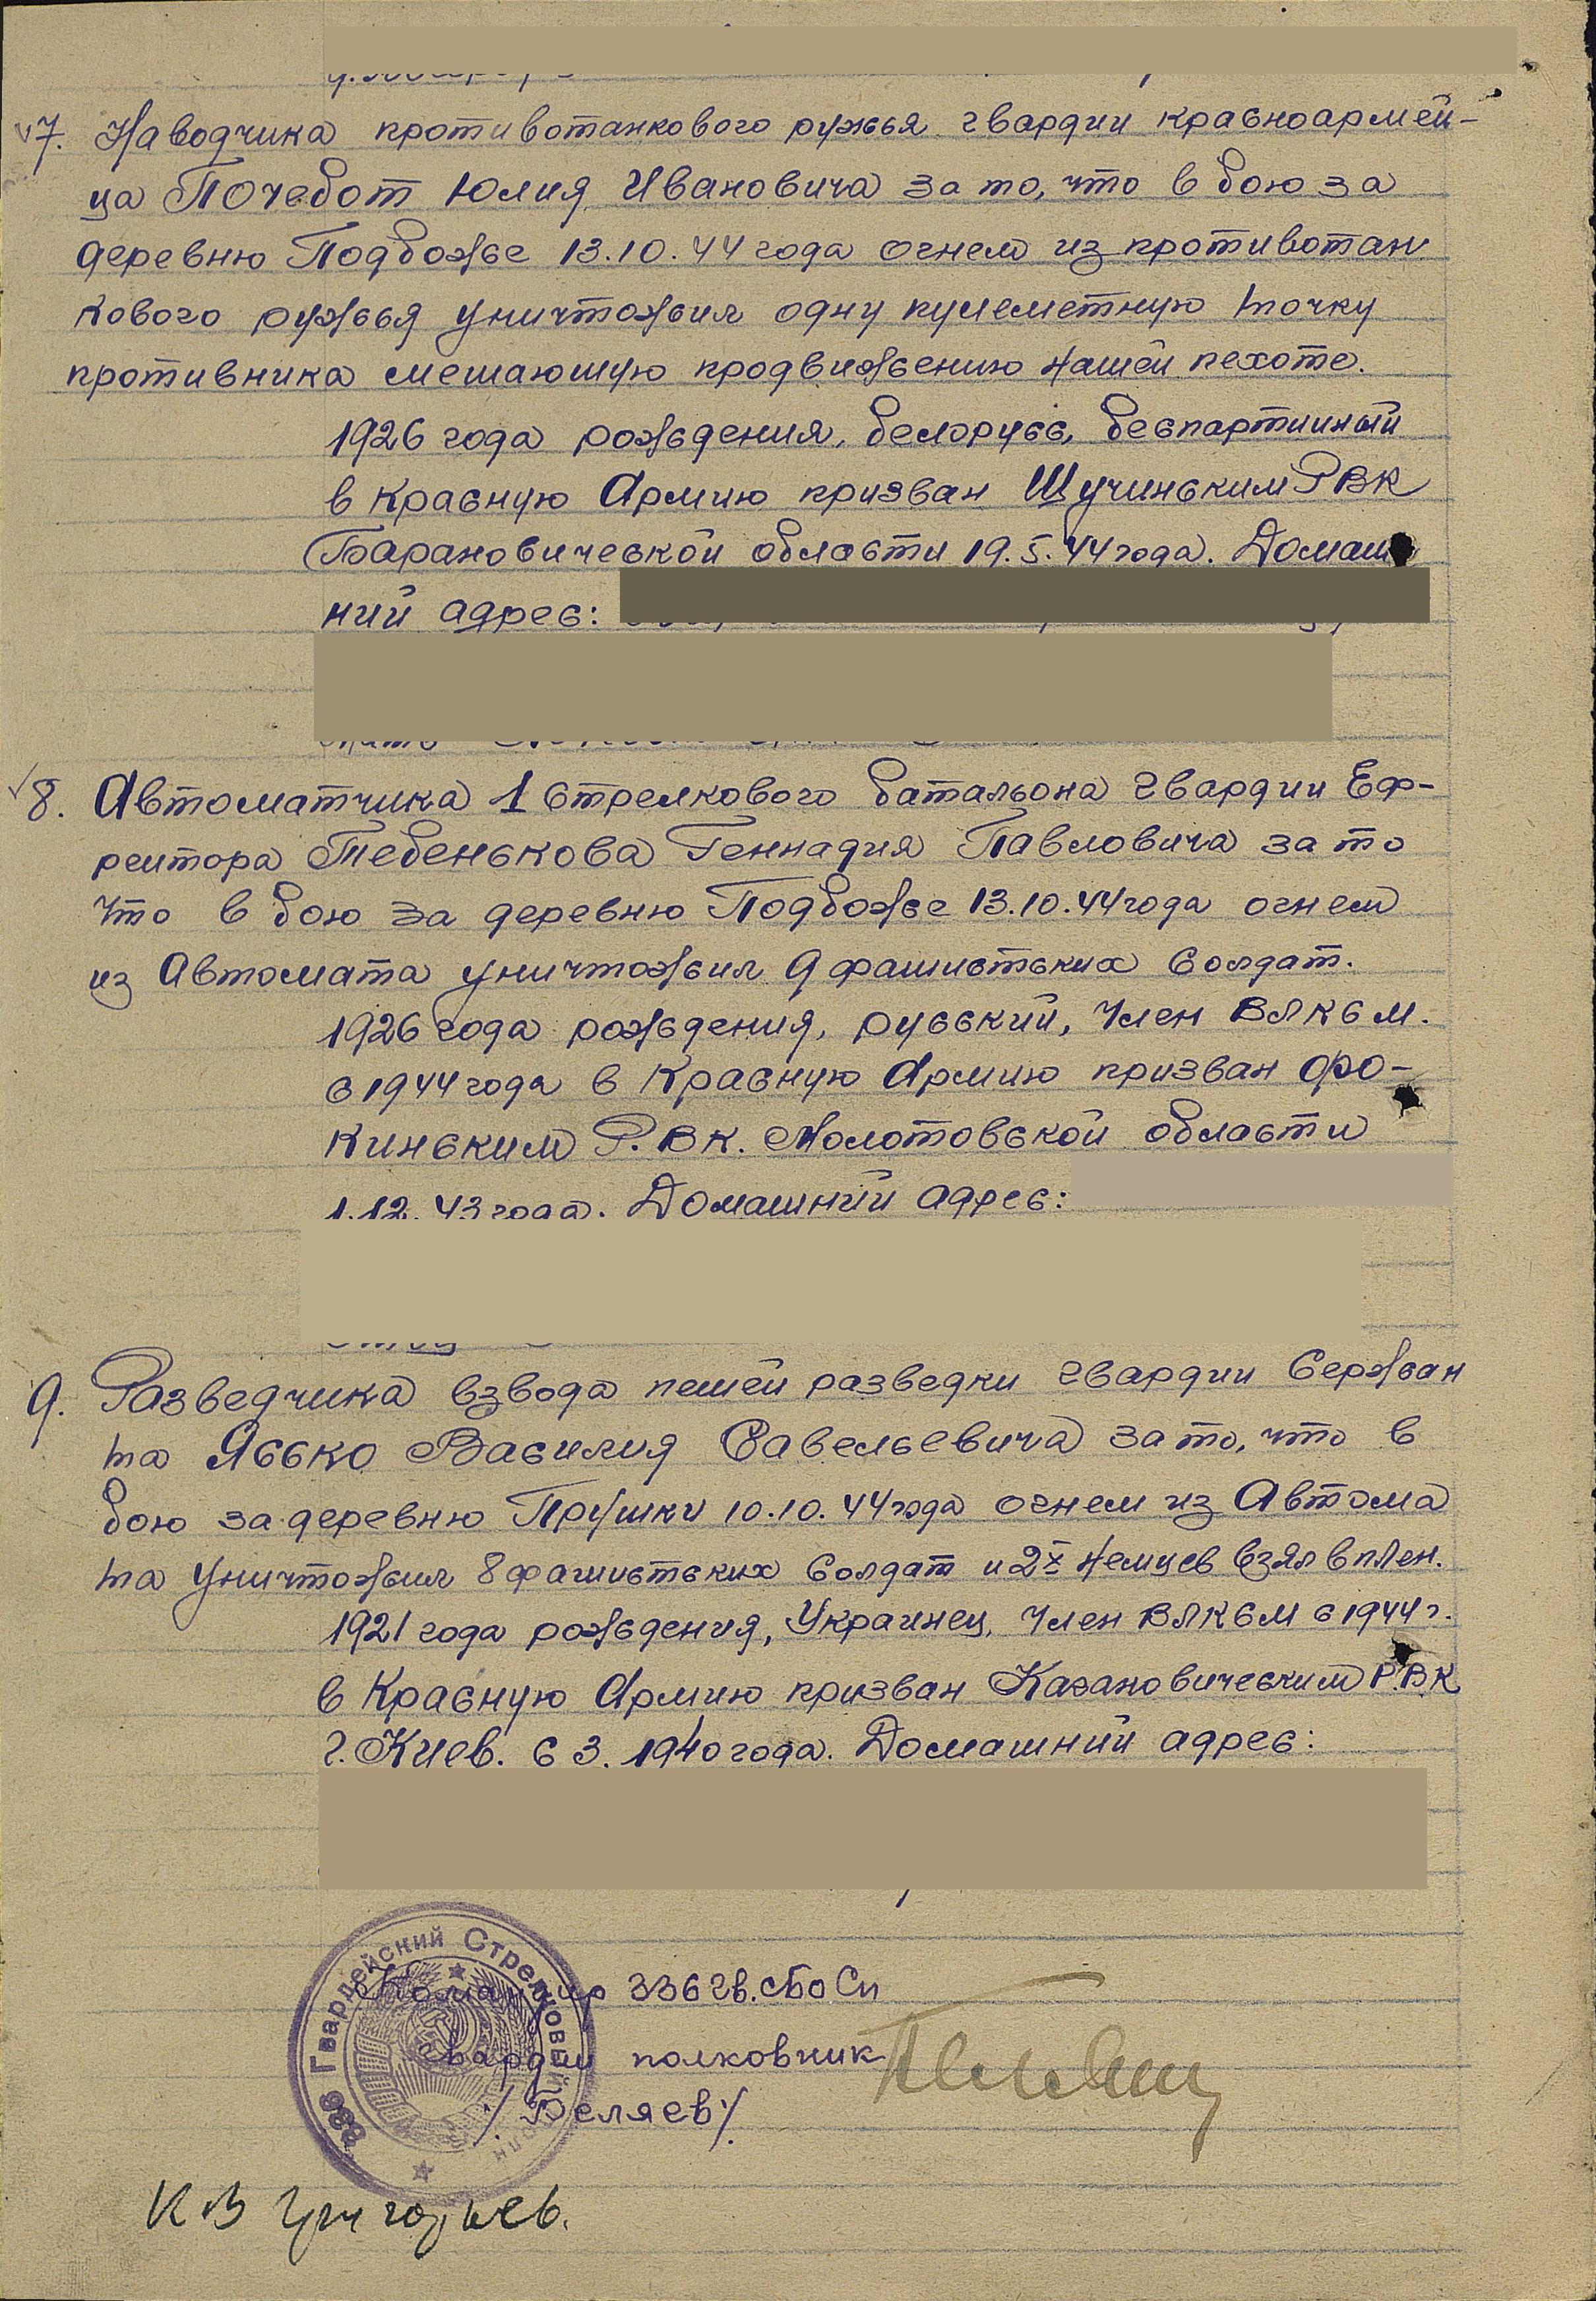 7. Наводчика противотанкового ружья гвардии красноармей-
ца Почебот Юлия Ивановича за то, что в бою за
деревню Подбожье 13.10.44 года огнем из противотан
кового ружья уничтожил одну пулеметную точку
противника мешаюшую продвижению нашей пехоте.
1926 года рождения, белорусс, беспартийный
в Красную Армию призван Щучинским РВК
Барановической области 19.5.44 года. Домаш
ний адрес:
8. Автоматчика 1 стрелкового батальона гвардии Еф-
рейтора Тебенькова Геннадия Павловича за то
что в бою за деревню Подбожье 13.10.44 года огнем
из Автомата уничтожил 9 фашистских солдат.
1926 года рождения, русский, Член ВЛКСМ.
с 1944 года в Красную Армию призван Фо-
кинским Р.ВК. Молотовской области
1.12.43 года. Домашний адрес:
9. Разведчика взвода пешей разведки гвардии Сержан
та Ясько Василия Савельевича за то, что в
бою за деревню Прушки 10.10.44 года огнем из Автома
та уничтожил 8 фашистских солдат и 2х немцев взял в плен.
1921 года рождения, Украинец, Член ВЛКСМ с 1944 г.
в Красную Армию призван Кагановическим Р.В.К
г. Киев. с 3. 1940 года. Домашний адрес:
336 Гвардейский Стрелковый
Командир 336 Гв.
гвардии полковник
/Беляев/
КВ Григорьев.